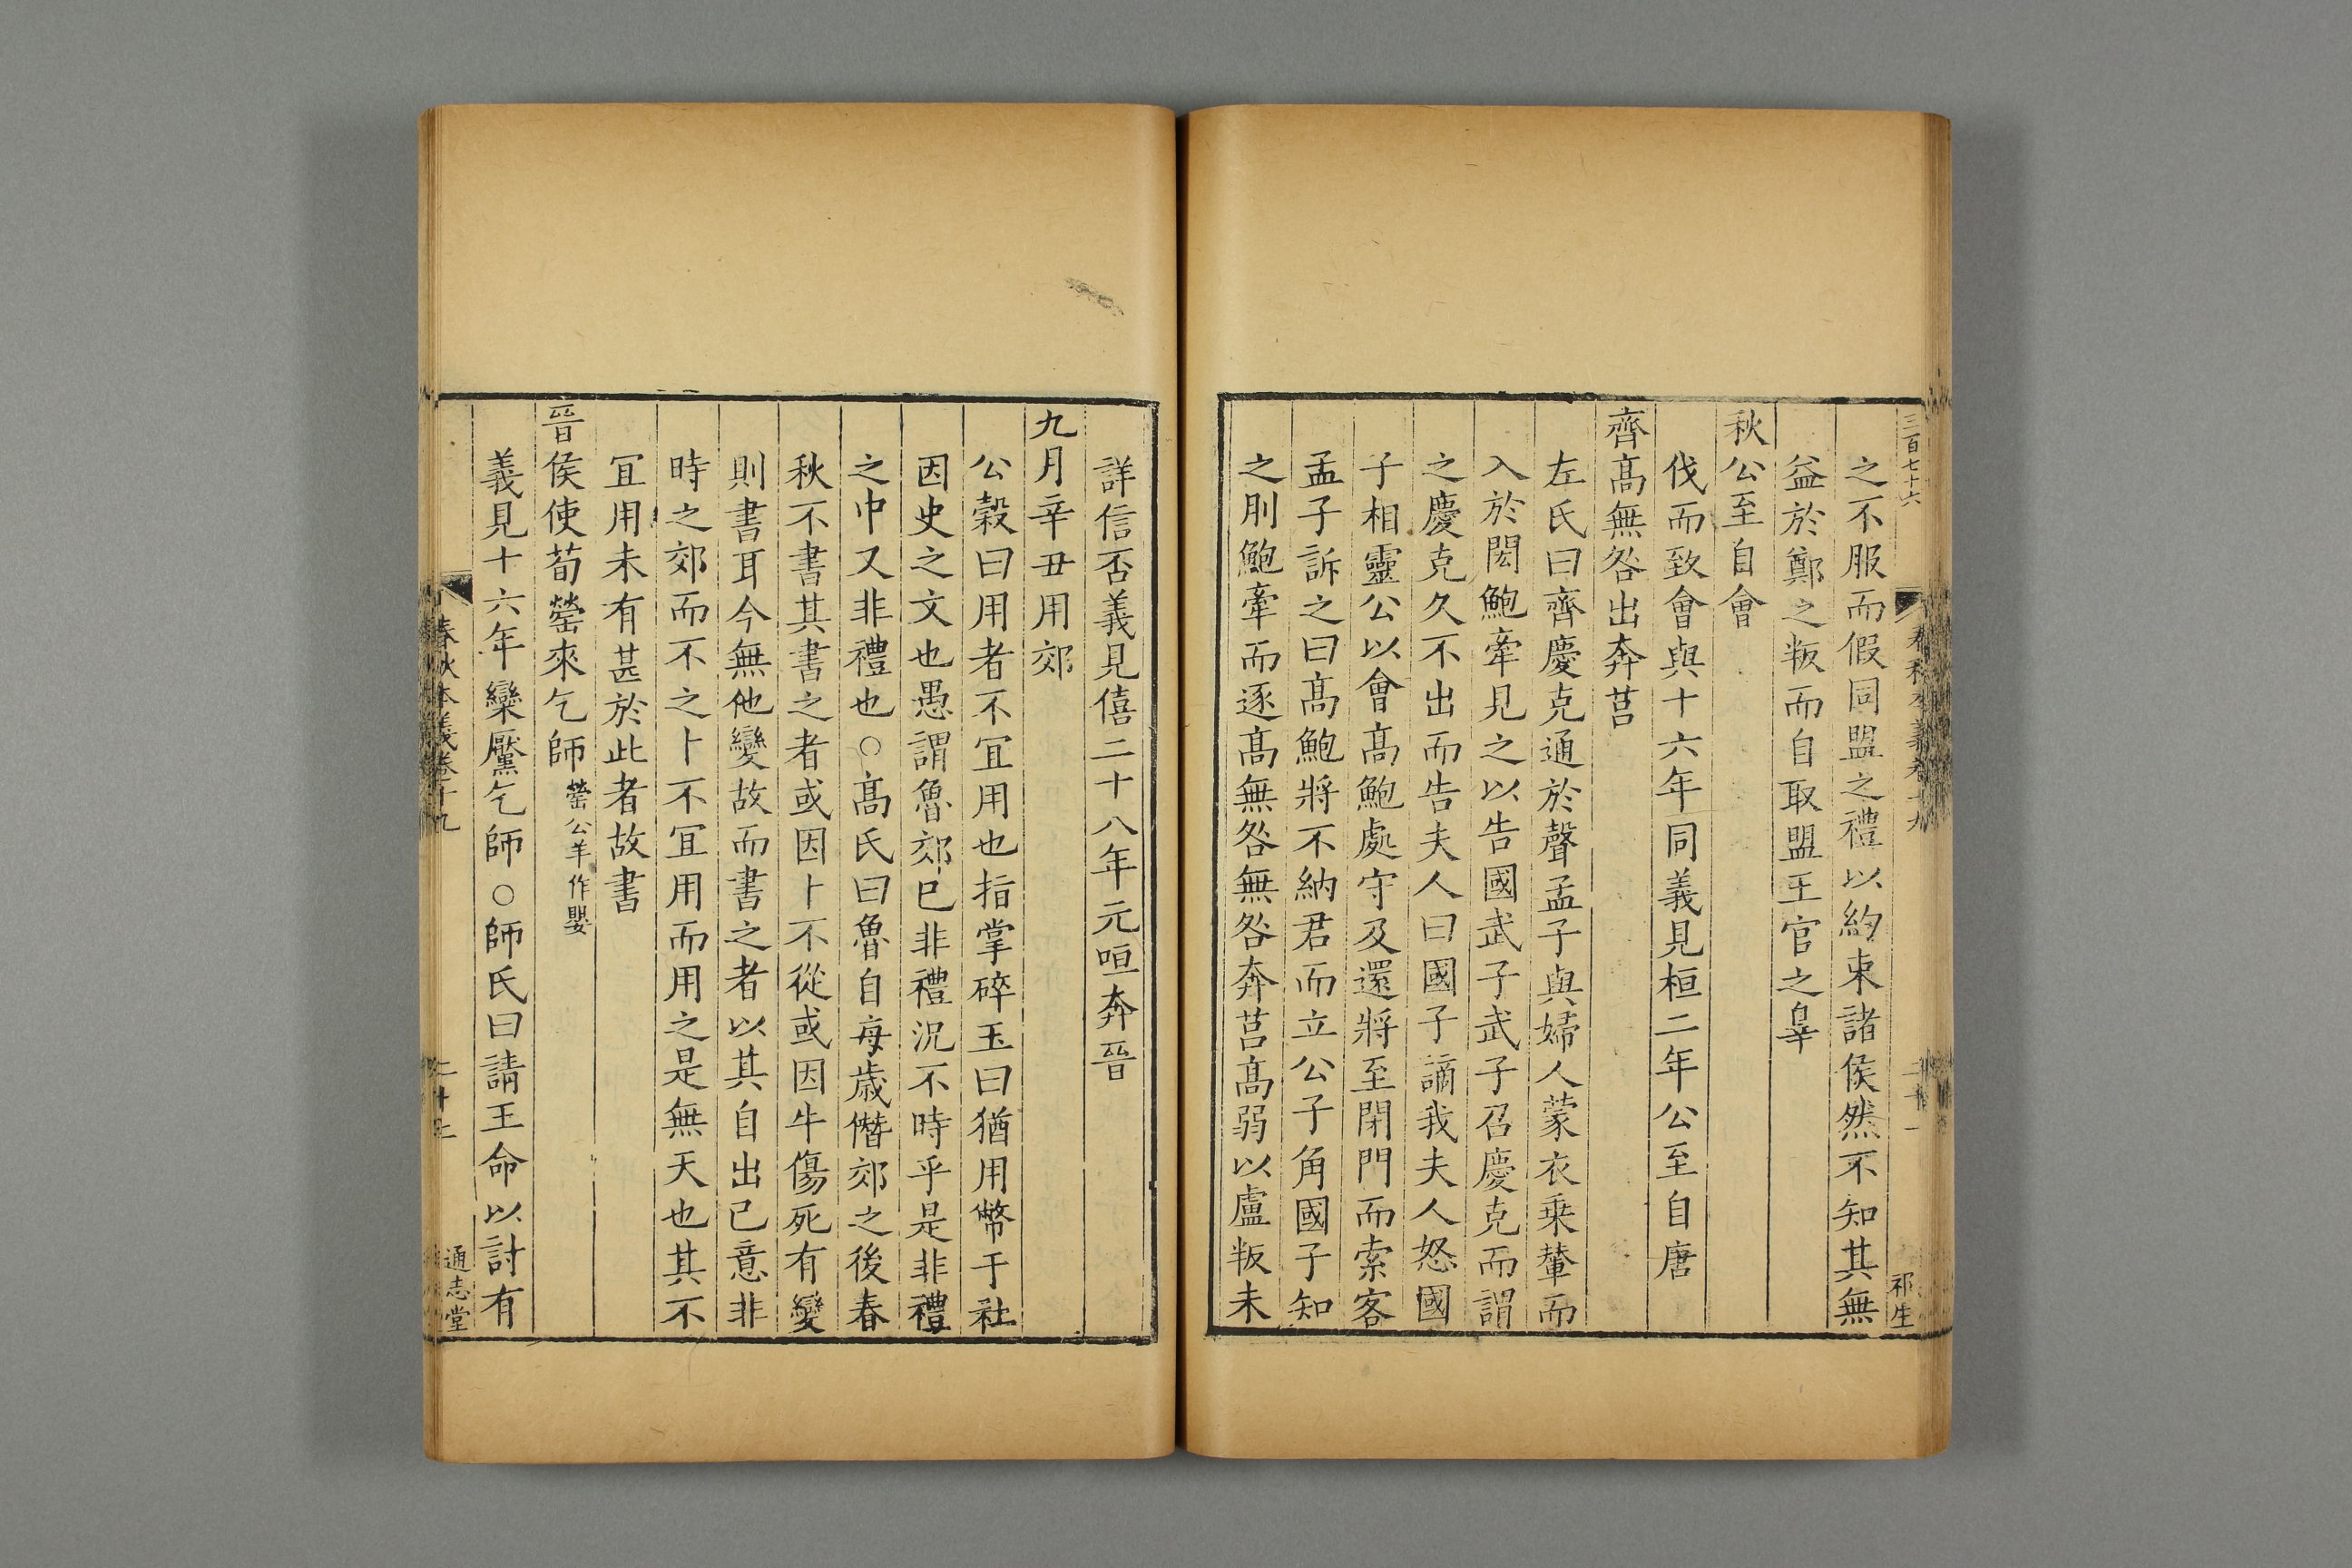 三百七十六
春秋本義卷十九
二十一
祁生
之不服而假同盟之禮以約束諸侯然不知其無
益於鄭之叛而自取盟王官之辠
秋公至自會
伐而致會與十六年同義見桓二年公至自唐
齊髙無咎出奔莒
左氏曰齊慶克通於聲孟子與婦人蒙衣乗輦而
入於閎鮑牽見之以告國武子武子召慶克而謂
之慶克久不出而告夫人曰國子謫我夫人怒國
子相靈公以會髙鮑處守及還將至閉門而索客
孟子訴之曰髙鮑將不納君而立公子角國子知
之刖鮑牽而逐髙無咎無咎奔莒髙弱以盧叛未
詳信否義見僖二十八年元咺奔晉
九月辛丑用郊
公穀曰用者不宜用也指掌碎玉曰猶用幣于社
因史之文也愚謂魯郊已非禮況不時乎是非禮
之中又非禮也○髙氏曰魯自每歲僭郊之後春
秋不書其書之者或因卜不從或因牛傷死有變
則書耳今無他變故而書之者以其自出己意非
時之郊而不之卜不宜用而用之是無天也其不
宜用未有甚於此者故書
晉侯使荀罃來乞師罃公羊作嬰
義見十六年欒黶乞師○師氏曰請王命以討有
春秋本義卷十九
通志堂